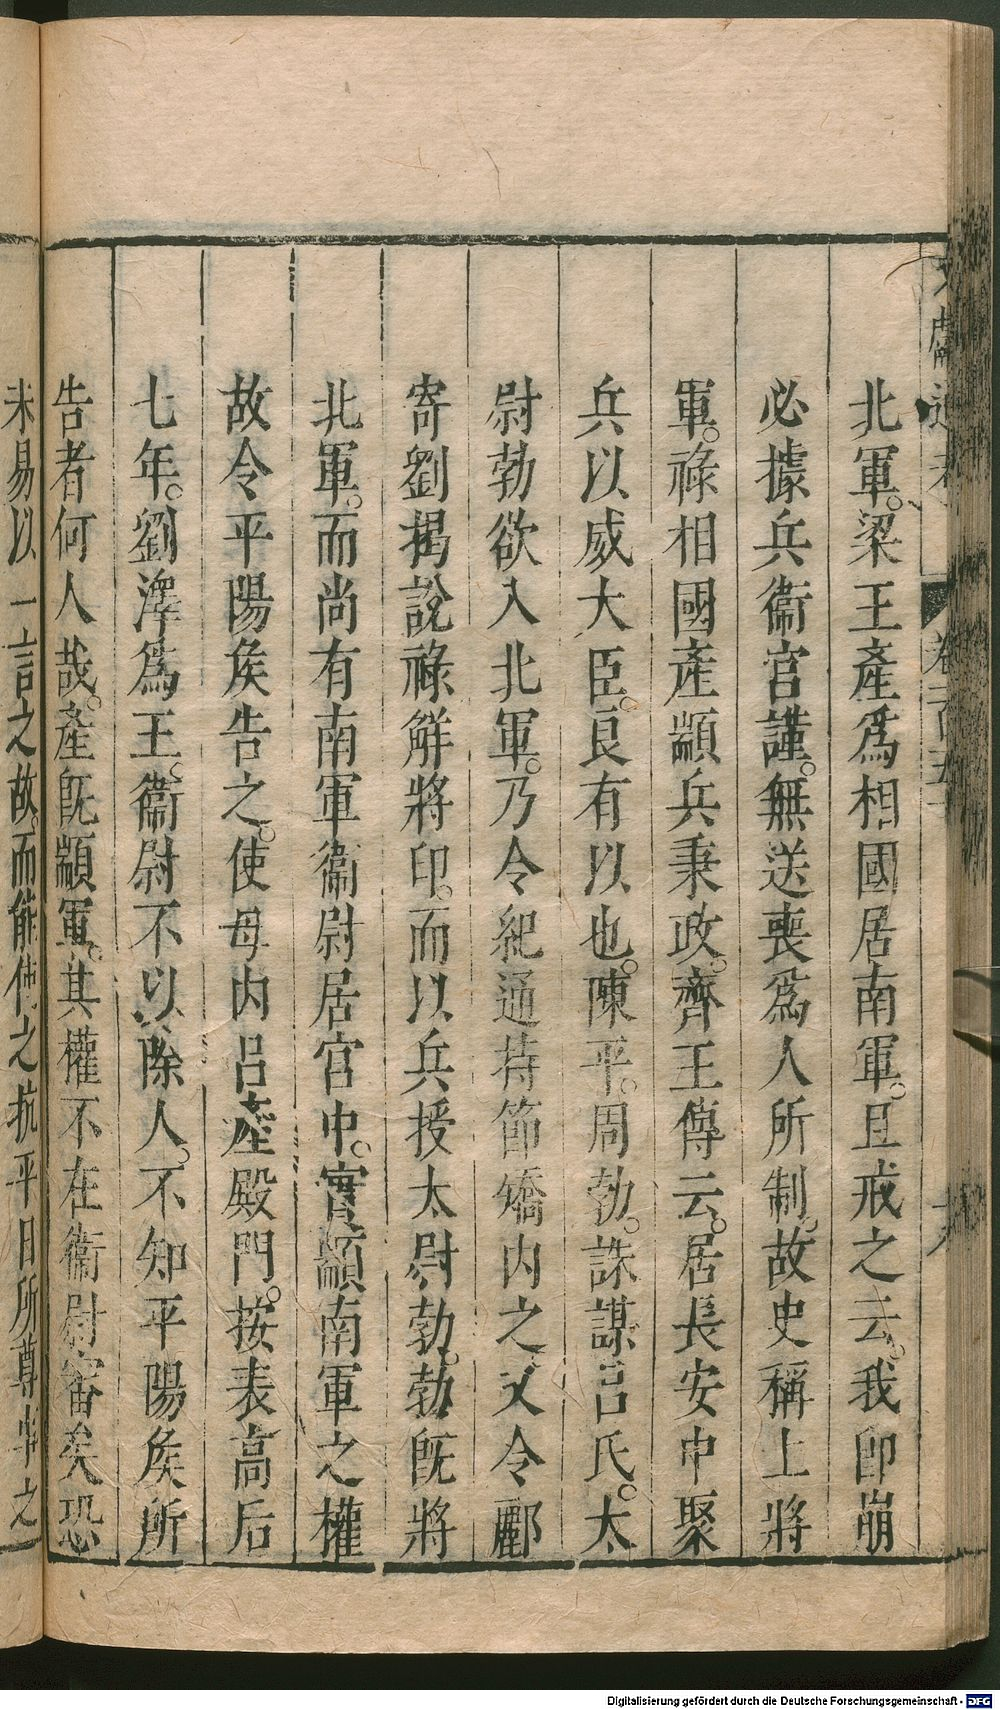 北軍。梁王產爲相國居南軍。且戒之云。我卽崩
必據兵衞宮謹。無送喪爲人所制。故史稱上將
軍。祿相國產顓兵秉政。齊王傳云。居長安中聚
兵以威大臣。良有以也。陳平。周勃。誅謀呂氏。太
尉勃欲入北軍。乃令紀通持節矯内之。又令酈
寄劉揭說祿解將印。而以兵授太尉勃。勃旣將
北軍。而尚有南軍衞尉居宮中。實顓南軍之權
故令平陽矦告之。使毋内呂產殿門。按表高后
七年。劉澤爲王。衞尉不以除人。不知平陽矦所
告者何人哉。產旣顓軍。其權不在衞尉審矣恐
未易以一言之故。而能使之抗平日所尊
Digitalisierung gefördert durch die Deutsche Forschungsgemeinschaft - DFG